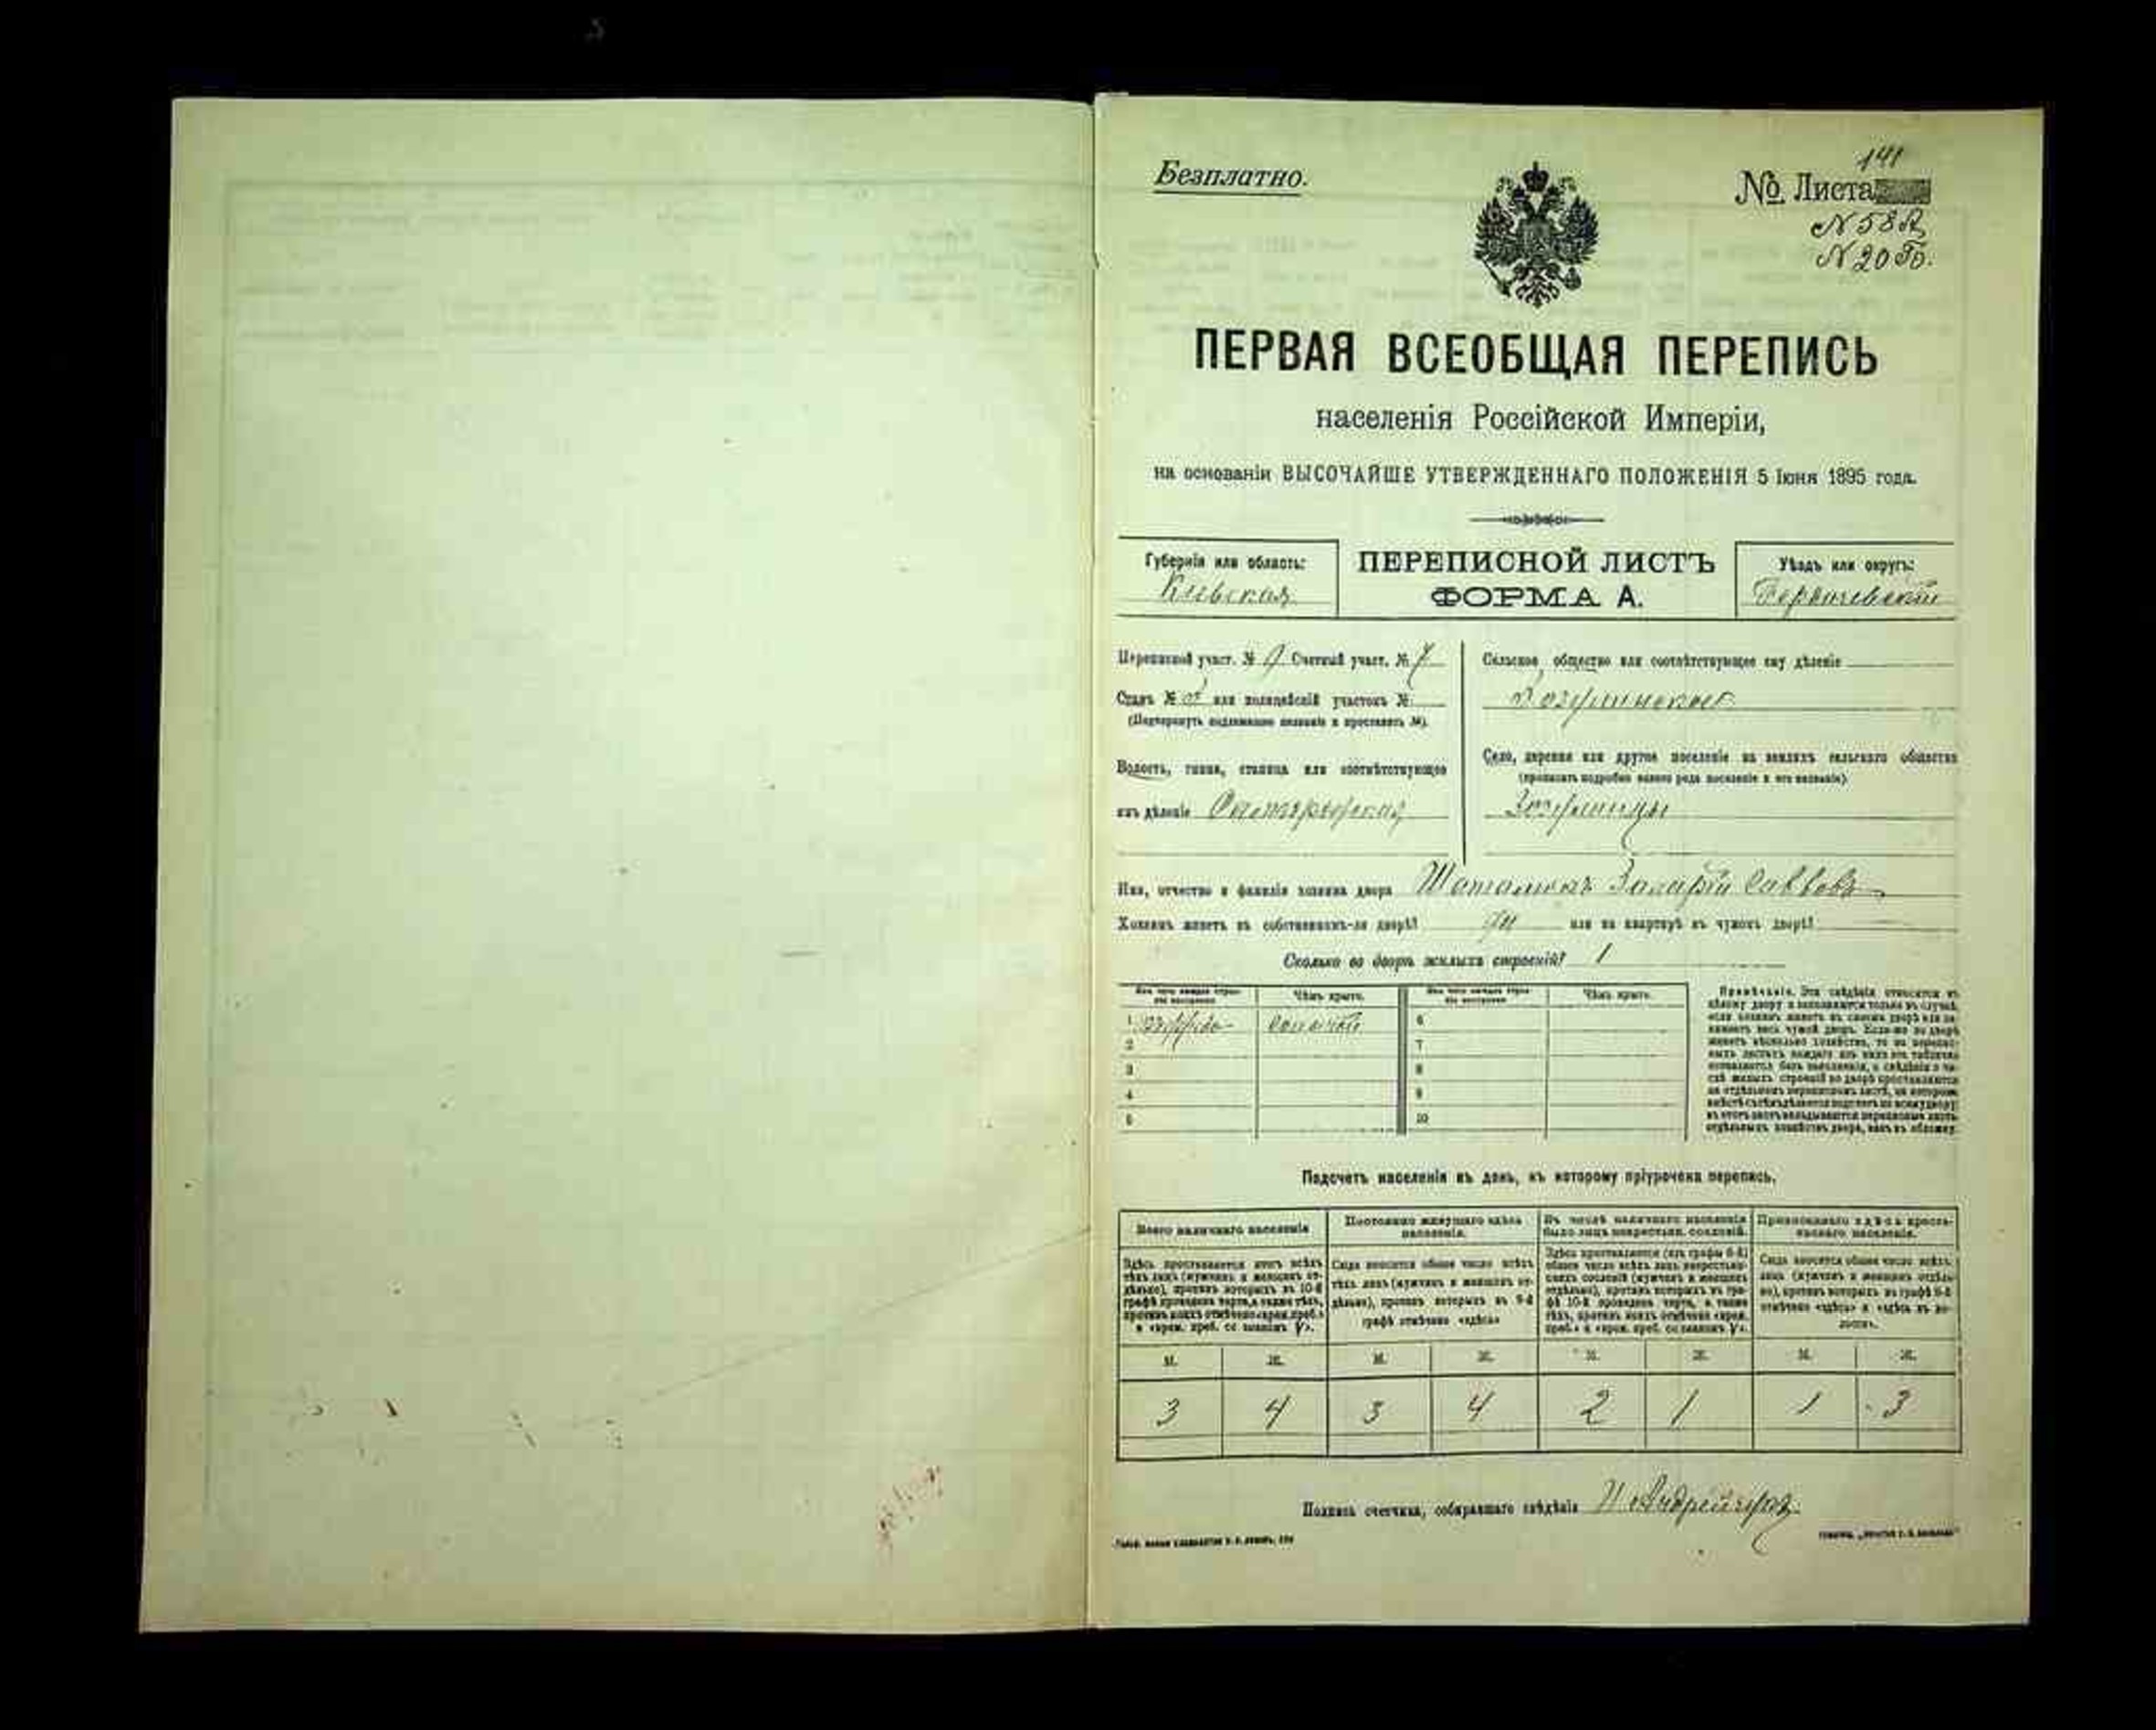 Безплатно.
141
№ Листа
N 58 А
N 20 Б.
ПЕРВАЯ ВСЕОБЩАЯ ПЕРЕПИСЬ
населенія Россійской Имперіи,
на основаніи ВЫСОЧАЙШЕ УТВЕРЖДЕННАГО ПОЛОЖЕНІЯ 5 Іюня 1895 года.
Губернія или область:
Кіевская
ПЕРЕПИСНОЙ ЛИСТЪ
ФОРМА А.
Уѣздъ или округъ:
Бердичевскій
Переписной участ. № Счетный участ. №
Станъ № или полицейскій участокъ №
(Подчеркнуть подлежащее названіе и проставить №).
Волость, гмина, станица или соотвѣтствующее
имъ дѣленіе
Сельское общество или соотвѣтствующее ему дѣленіе
Село, деревня или другое поселеніе на земляхъ сельскаго общества
(прописать подробно какого рода поселеніе и его названіе).
Имя, отчество и фамилія хозяина двора Захарій Саввовъ
Хозяинъ живетъ въ собственномъ-ли дворѣ? или на квартирѣ въ чужомъ дворѣ?
Сколько во дворѣ жилыхъ строеній? 1
Изъ чего каждое строеніе построено
Чѣмъ крыто.
Изъ чего каждое строеніе построено
Чѣмъ крыто.
1 Соломой 6
2 7
3 8
4 9
5 10
Примѣчаніе. Эти свѣдѣнія относятся къ
цѣлому двору и заполняются только въ случаѣ,
если хозяинъ живетъ въ своемъ дворѣ или занимаетъ весь чужой дворъ. Если-же во дворѣ
живетъ нѣсколько хозяйствъ, то на переписныхъ листахъ каждаго изъ нихъ эта табличка
оставляется безъ заполненія, а свѣдѣнія о числѣ жилыхъ строеній во дворѣ проставляются
на отдѣльномъ переписномъ листѣ, на которомъ
Подсчетъ населенія въ день, къ которому пріурочена перепись.
Всего наличнаго населенія
Постоянно живущаго здѣсь населенія.
Въ числѣ наличнаго населенія было лицъ некрестьян. сословій.
Приписаннаго здѣсь крестьянскаго населенія.
Здѣсь проставляется итогъ всѣхъ
тѣхъ лицъ (мужчинъ и женщинъ отдѣльно), противъ которыхъ въ 10-й
графѣ проведена черта, а также тѣхъ,
противъ коихъ отмѣчено «врем. преб.»
и «врем. преб. со знакомъ V».
Сюда вносится общее число всѣхъ
тѣхъ лицъ (мужчинъ и женщинъ отдѣльно), противъ которыхъ въ 9-й
графѣ отмѣчено «здѣсь»
Здѣсь проставляется (изъ графы 6-й)
общее число всѣхъ лицъ некрестьянскихъ сословій (мужчинъ и женщинъ
отдѣльно), противъ которыхъ въ графѣ 10-й проведена черта, а также
тѣхъ, противъ коихъ отмѣчено «врем.
преб.» и «врем. преб. со знакомъ V».
Сюда вносится общее число всѣхъ
лицъ (мужчинъ и женщинъ отдѣльно), противъ которыхъ въ графѣ 8-й
отмѣчено «здѣсь» и «здѣсь въ волости».
М. Ж. М. Ж. М. Ж. М. Ж.
3 4 3 4 2 1 1 3
Подпись счетчика, собиравшаго свѣдѣнія